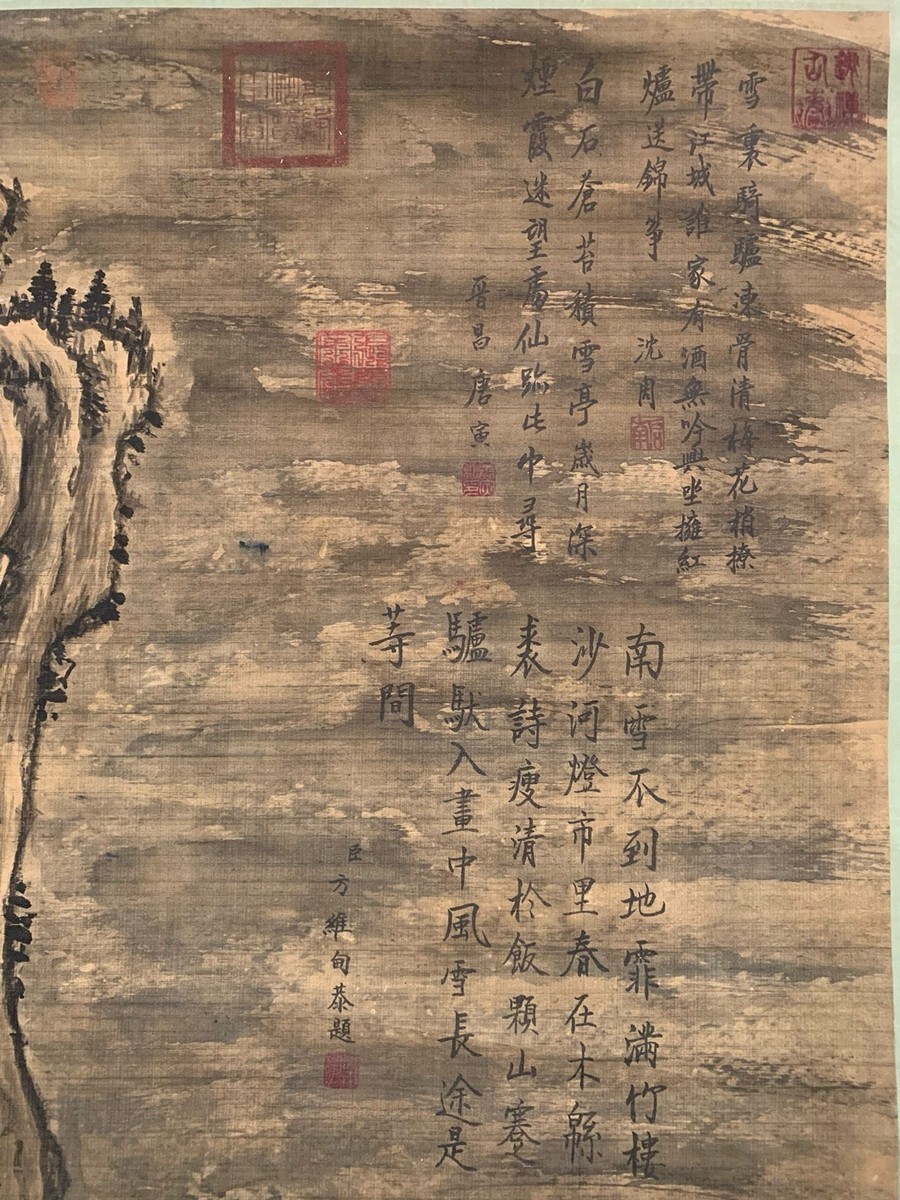 雪裏騎驢凍骨清梅花梢撩
帶江城誰家有酒無吟興坐擁紅
爐送錦箏
沈周
白石蒼苔積雪亭歲月深
煙霞迷望處仙跡此中尋
晉昌唐寅
南雪不到地霏滿竹樓
沙河燈市里春在木緜
裘詩瘦清於飯顆山蹇
驢馱入畫中風雪長途是
等間
臣方維甸恭題